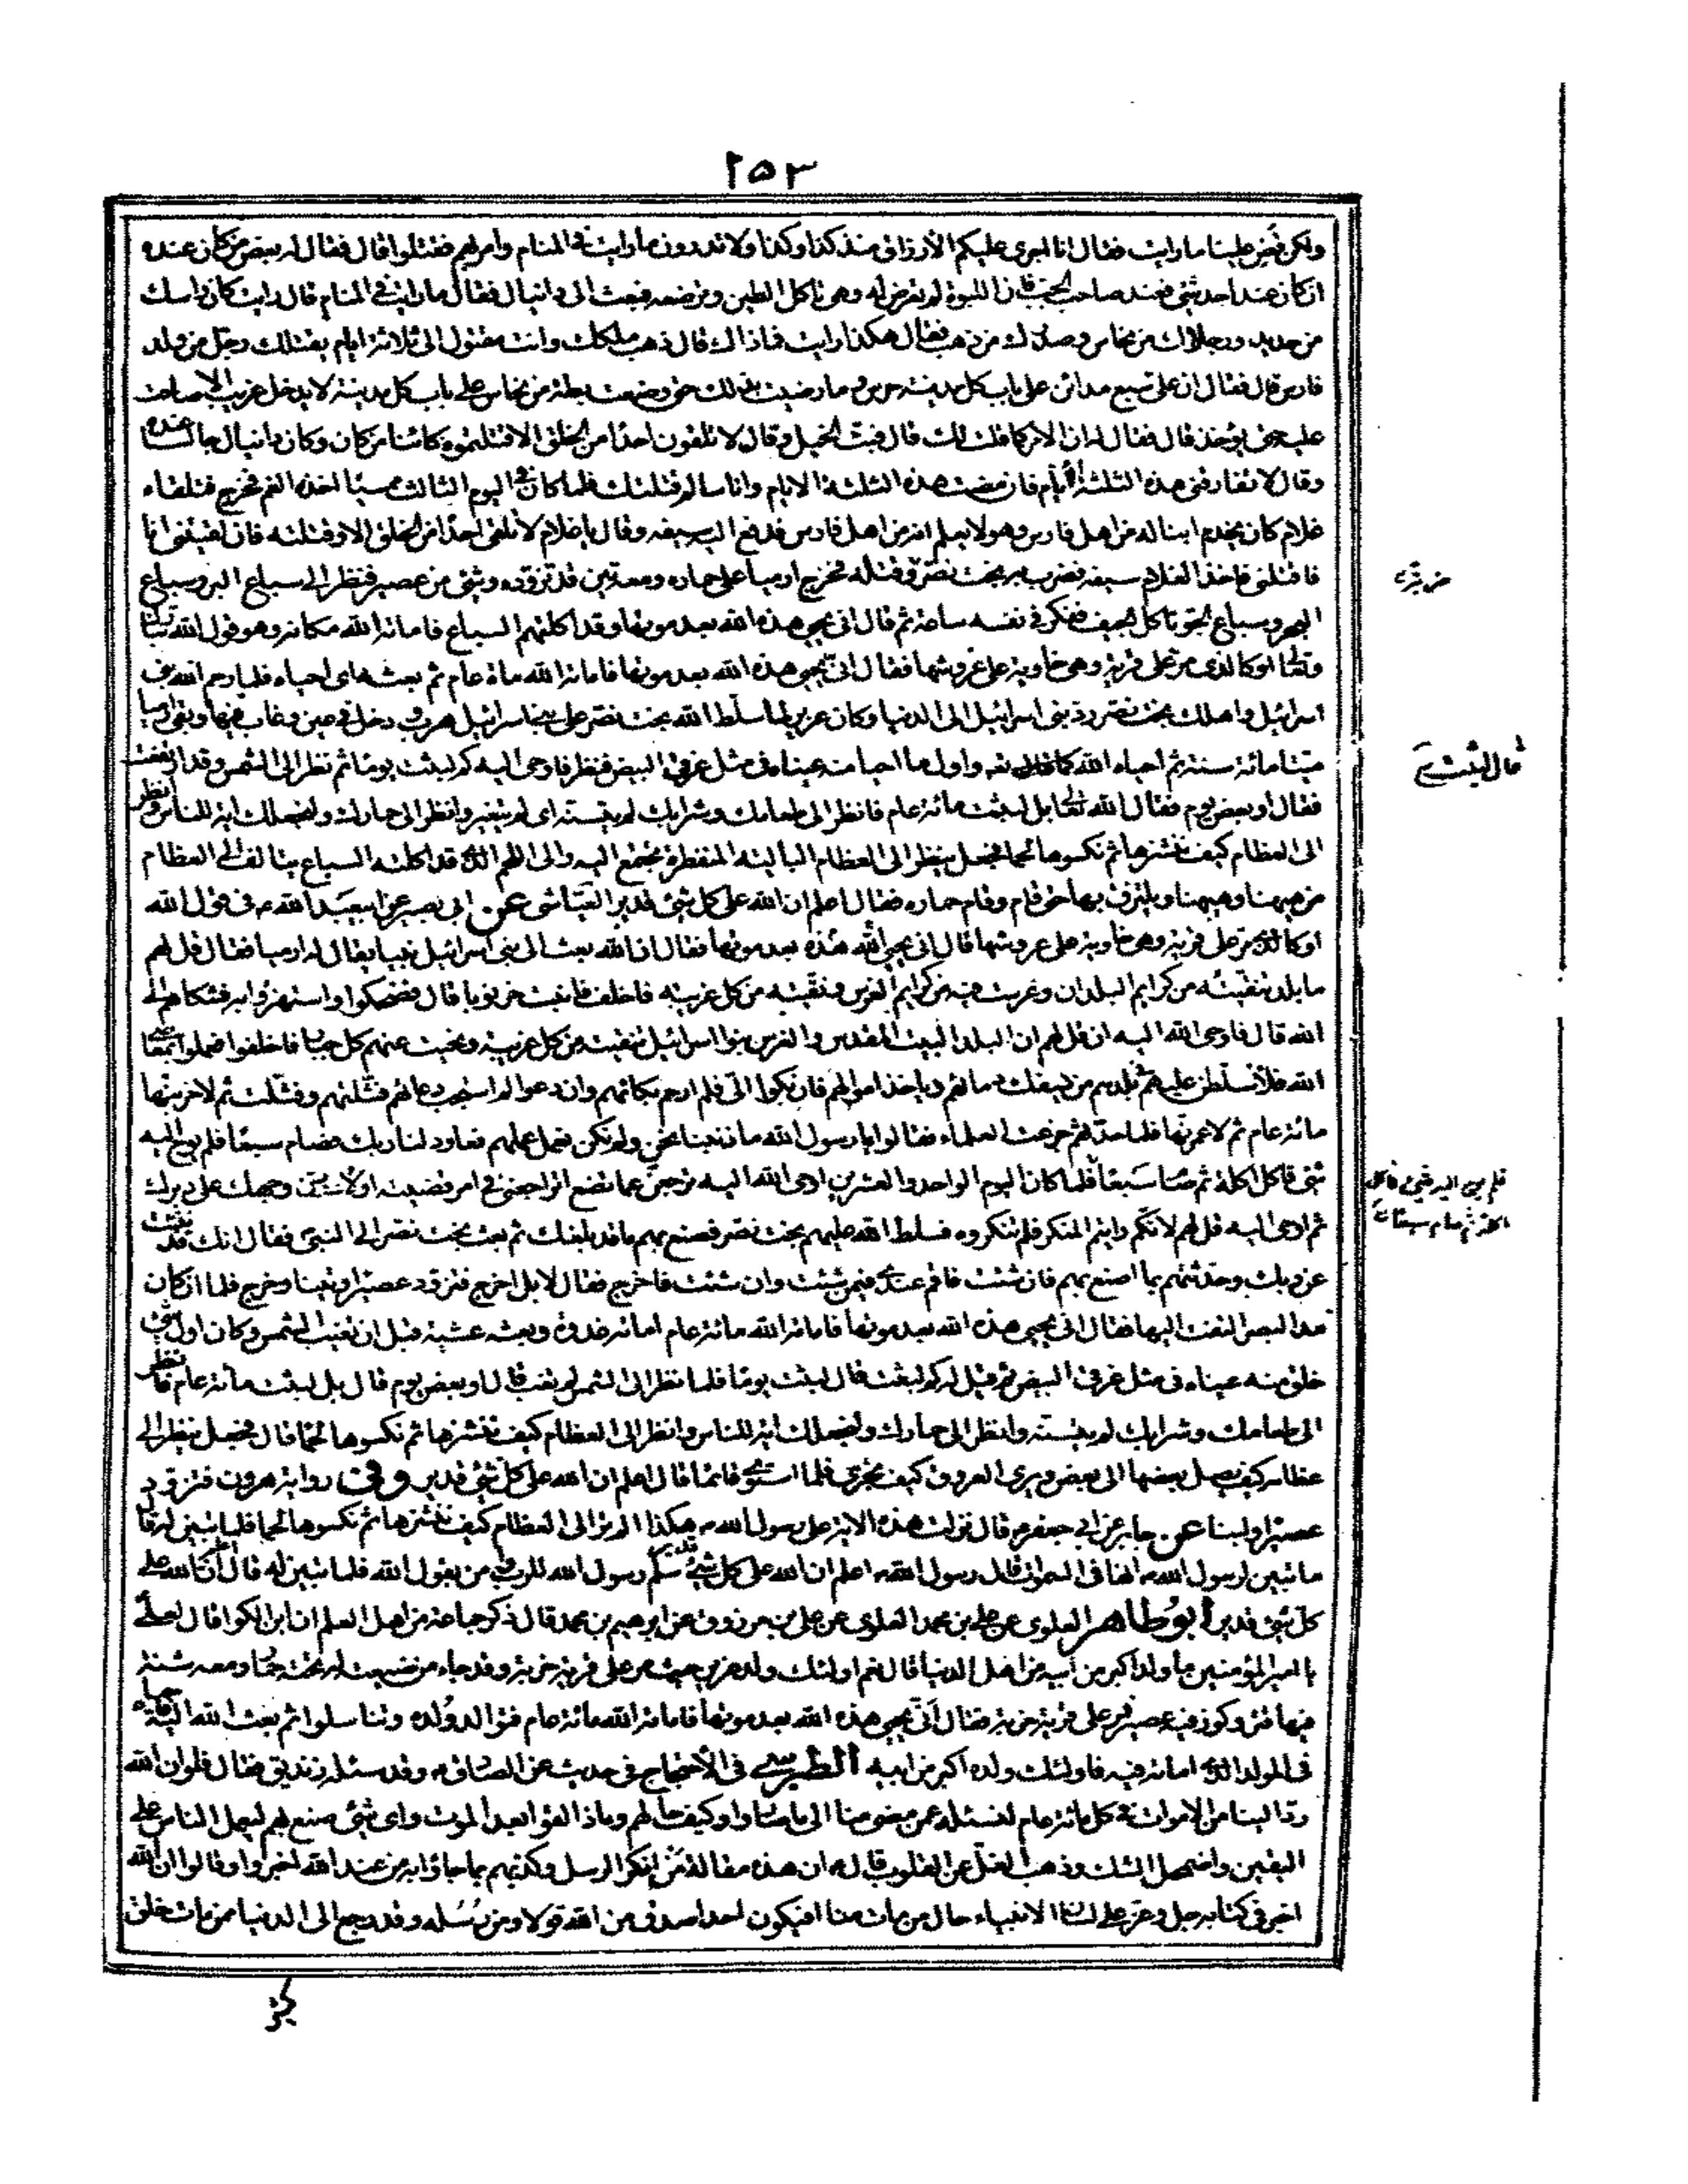 ٢٥٣
ولكن قص علينا ما رايت فقال انا اجري عليكم الارزاق منذ كذا وكذا ولا تدرون ما رايت في المنام وامر بهم فقتلوا قال فقال له بعض من كان عنده
ان كان عند احد شئ فعند صاحب الجب فان اللبوة لم تعرض له وهي تاكل الطين وترضعه فبعث الى دانيال فقال ما رايت في المنام قال رايت كان راسك
من حديد ورجلاك من نحاس وصدرك من ذهب فقال هكذا رايت فما ذاك قال ذهب ملكك وانت مقتول الى ثلاثة ايام يقتلك رجل من ولد
فارس قال فقال ان علي سبع مدائن على باب كل مدينة حرس وما رضيت بذلك حتى وضعت بطة من نحاس على باب كل مدينة لا يدخل غريب الا صاحت
عليه حتى يؤخذ قال فقال له ان الامر كما قلت لك قال فبث الخيل وقال لا تلقون احدا من الخلق الا قتلتموه كائنا من كان وكان دانيال جالسا عنده
وقال لا تفارقني هذه الثلثة الايام فان مضت هذه الثلثة الايام وانا سالم قتلتك فلما كان في اليوم الثالث ممسيا اخذه الغم فخرج فتلقاه
غلام كان يخدم ابنا له من اهل فارس وهو لا يعلم انه من اهل فارس فدفع اليه سيفه وقال يا غلام لا تلقى احدا من الخلق الا وقتلته فان لقيتني انا
فاقتلني فاخذ الغلام سيفه فضرب به بخت نصر وقتله فخرج ارميا على حماره ومعه تين قد تزوده وشئ من عصير فنظر الى سباع البر وسباع
البحر وسباع الجو تاكل الجيف ففكر في نفسه ساعة ثم قال انى يحيي هذه الله بعد موتها وقد اكلتهم السباع فاماته الله مكانه وهو قول الله تبارك
وتعالى او كالذي مر على قرية وهي خاوية على عروشها فقال انى يحيي هذه الله بعد موتها فاماته الله ماة عام ثم بعثه اي احياه فلما رحم الله بني
اسرائيل واهلك بخت نصر رد بني اسرائيل الى الدنيا وكان عزير لما سلط الله بخت نصر على بني اسرائيل هرب ودخل في عين وغاب فيها وبقي ارميا
ميتا مائة سنة ثم احياه الله فاول ما احيا منه عيناه في مثل غرقئ البيض فنظر فاوحى اليه كم لبثت يوما ثم نظر الى الشمس وقد ارتفعت
فقال او بعض يوم فقال الله تعالى بل لبثت مائة عام فانظر الى طعامك وشرابك لم يتسنه اي لم يتغير وانظر الى حمارك ولنجعلك اية للناس وانظر
الى العظام كيف ننشزها ثم نكسوها لحما فجعل ينظر الى العظام البالية المنفطرة تجتمع اليه والى اللحم الذي قد اكلته السباع يتالف الى العظام
من ههنا وههنا ويلتزق بها حتى قام وقام حماره فقال اعلم ان الله على كل شئ قدير العياشي عن ابي بصير عن ابي عبد الله ع في قول الله
او كالذي مر على قرية وهي خاوية على عروشها قال انى يحيي الله هذه بعد موتها فقال ان الله بعث الى بني اسرائيل نبيا يقال له ارميا فقال قل لهم
ما بلد تنقيته من كرايم البلدان وغرست فيه من كرايم الغرس ونقيته من كل غريبة فاخلف فانبت خرنوبا قال فضحكوا واستهزؤا به فشكاهم الى
الله قال فاوحى الله اليه ان قل لهم ان البلد البيت المقدس والغرس بنوا اسرائيل تنقيت من كل غريبة ونحيت عنهم كل جبار فاخلفوا فعملوا بمعاصي
الله فلاسلطن عليهم في بلدهم من يسفك دمائهم وياخذ اموالهم فان بكوا الي فلم ارحم بكائهم وان دعوا لم استجب دعائهم فشلتهم وفشلت ثم لاخربنها
مائة عام ثم لاعمرنها فلما حدثهم جزعت العلماء فقالوا يا رسول الله ما ذنبنا نحن ولم نكن نعمل بعملهم فعاود لنا ربك فصام سبعا فلم يوح اليه
شئ فاكل اكلة ثم صام سبعا فلما كان اليوم الواحد والعشرين اوحى الله اليه ترجعن عما تصنع اتراجعني في امر قضيته او لاردن وجهك على دبرك
ثم اوحى اليه قل لهم لانكم رايتم المنكر فلم تنكروه فسلط الله عليهم بخت نصر فصنع بهم ما قد بلغك ثم بعث بخت نصر الى النبي فقال انك قد نبئت
عن ربك وحدثتهم بما اصنع بهم فان شئت فاقم عندي فيمن شئت وان شئت فاخرج فقال لا بل اخرج فتزود عصيرا وتينا وخرج فلما ان كان
مد البصر التفت اليها فقال انى يحيي هذه الله بعد موتها فاماته الله مائة عام اماته غدوة وبعثه عشية قبل ان تغيب الشمس وكان اول شئ
خلق منه عيناه في مثل غرقئ البيض ثم قيل له كم لبثت قال لبثت يوما فلما نظر الى الشمس لم تغب قال او بعض يوم قال بل لبثت مائة عام فانظر
الى طعامك وشرابك لم يتسنه وانظر الى حمارك ولنجعلك اية للناس وانظر الى العظام كيف ننشزها ثم نكسوها لحما قال فجعل ينظر الى
عظامه كيف يصل بعضها الى بعض ويرى العروق كيف تجري فلما استوى قائما قال اعلم ان الله على كل شئ قدير وفي رواية هرون فتزود
عصيرا ولبنا عن جابر عن ابي جعفر ع قال نزلت هذه الاية على رسول الله ص هكذا الم تر الى العظام كيف ننشزها ثم نكسوها لحما فلما تبين له قال
ما تبين لرسول الله ص انها في السموات قال رسول الله ص اعلم ان الله على كل شئ قدير سلم رسول الله للرب من يقول الله فلما تبين له قال اعلم ان الله على
كل شئ قدير ابو طاهر العلوي عن علي بن محمد العلوي عن علي بن مرزوق عن ابرهيم بن محمد قال ذكر جماعة من اهل العلم ان ابن الكوا قال لعلي
يا امير المؤمنين ما ولد اكبر من ابيه من اهل الدنيا قال نعم اولئك ولد عزير حيث مر على قرية خربة وقد جاء من ضيعة له تحته حمار ومعه شنة
فيها تين وكوز فيه عصير فمر على قرية خربة فقال انى يحيي هذه الله بعد موتها فاماته الله مائة عام فتوالد ولده وتناسلوا ثم بعث الله اليه فاحياه
في المولد الذي اماته فيه فاولئك ولده اكبر من ابيه الطبرسي في الاحتجاج في حديث عن الصادق ع وقد سئله زنديق فقال فلو ان الله
رد الينا من الاموات في كل مائة عام لنسئله عمن مضى منا الى ما صاروا وكيف حالهم وماذا لقوا بعد الموت واي شئ صنع بهم ليعمل الناس على
اليقين واضمحل الشك وذهب الغل عن القلوب قال ع ان هذه مقالة من انكر الرسل وكذبهم بما جاؤا به من عند الله اخبروا وقالوا ان الله
اخبر في كتابه جل وعز على لسان الانبياء حال من مات منا افيكون احد اصدق من الله قولا ومن رسله وقد رجع الى الدنيا ممن مات خلق
قال لبثت
فلم يوح اليه شئ فاكل
اكلة ثم صام سبعا